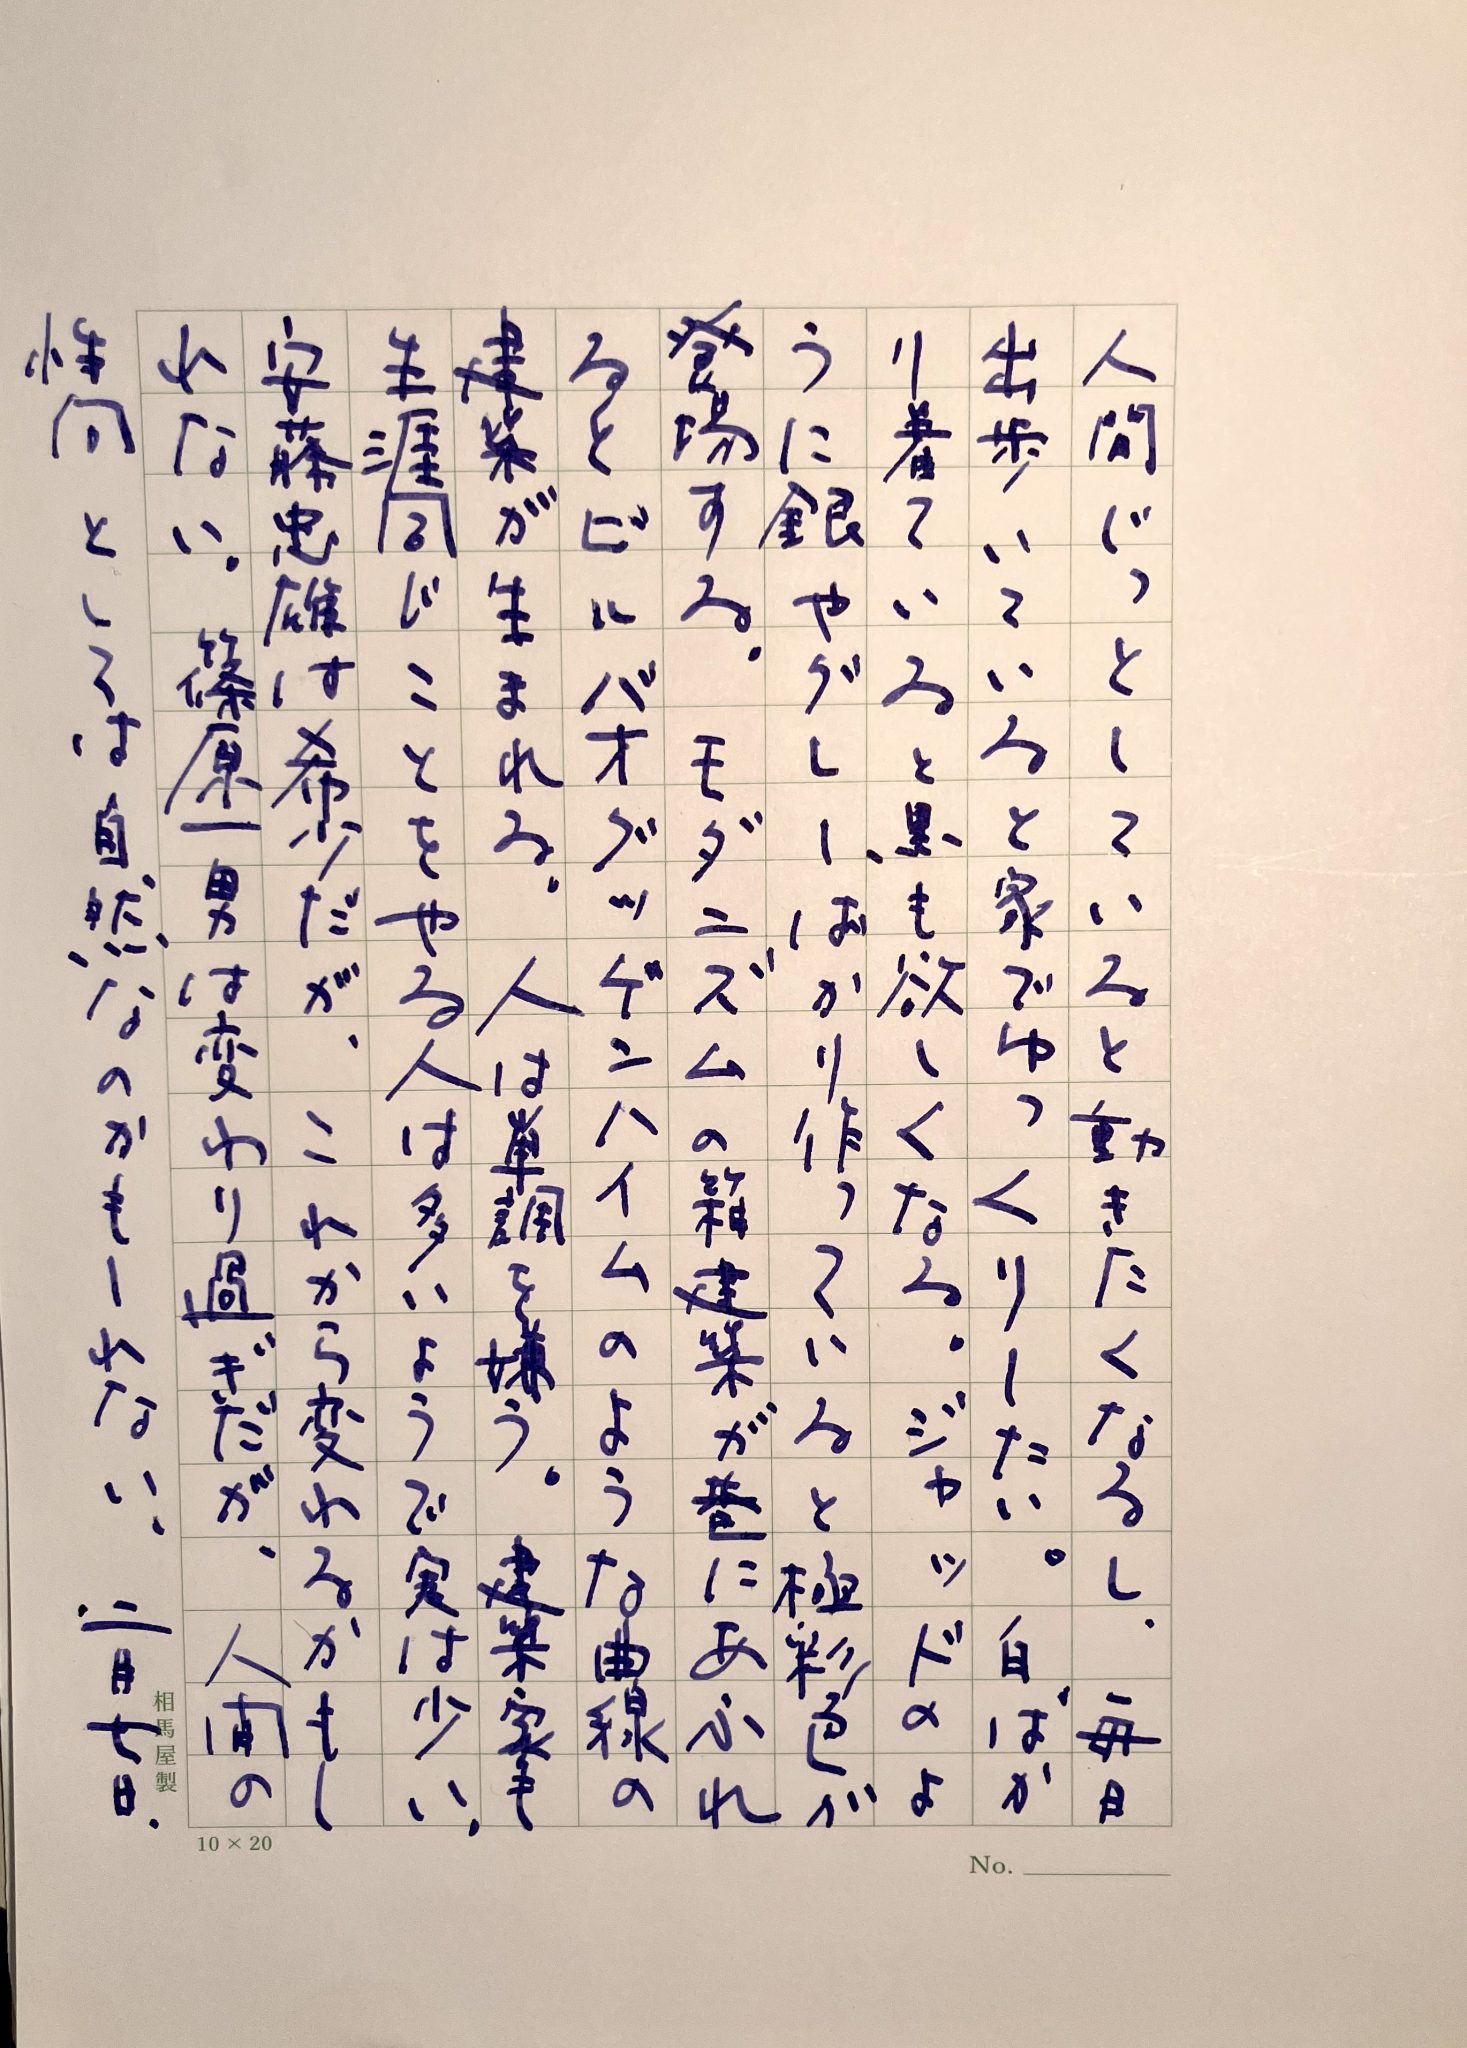 人間じっとしていると動きたくなるし、毎日
出歩いていると家でゆっくりしたい。白ばか
り着ていると黒も欲しくなる。ジャッドのよ
うに銀やグレーばかり作っていると極彩色が
登場する。モダニズムの箱建築が巷にあふれ
るとビルバオグッゲンハイムのような曲線の
建築が生まれる。人は単調を嫌う。建築家も
生涯同じことをやる人は多いようで実は少い。
安藤忠雄は希少だが、これから変わるかもし
れない。篠原一男は変わり過ぎだが、人間の
性向としては自然なのかもしれない。二月七日。
相馬屋製
10 × 20
No.